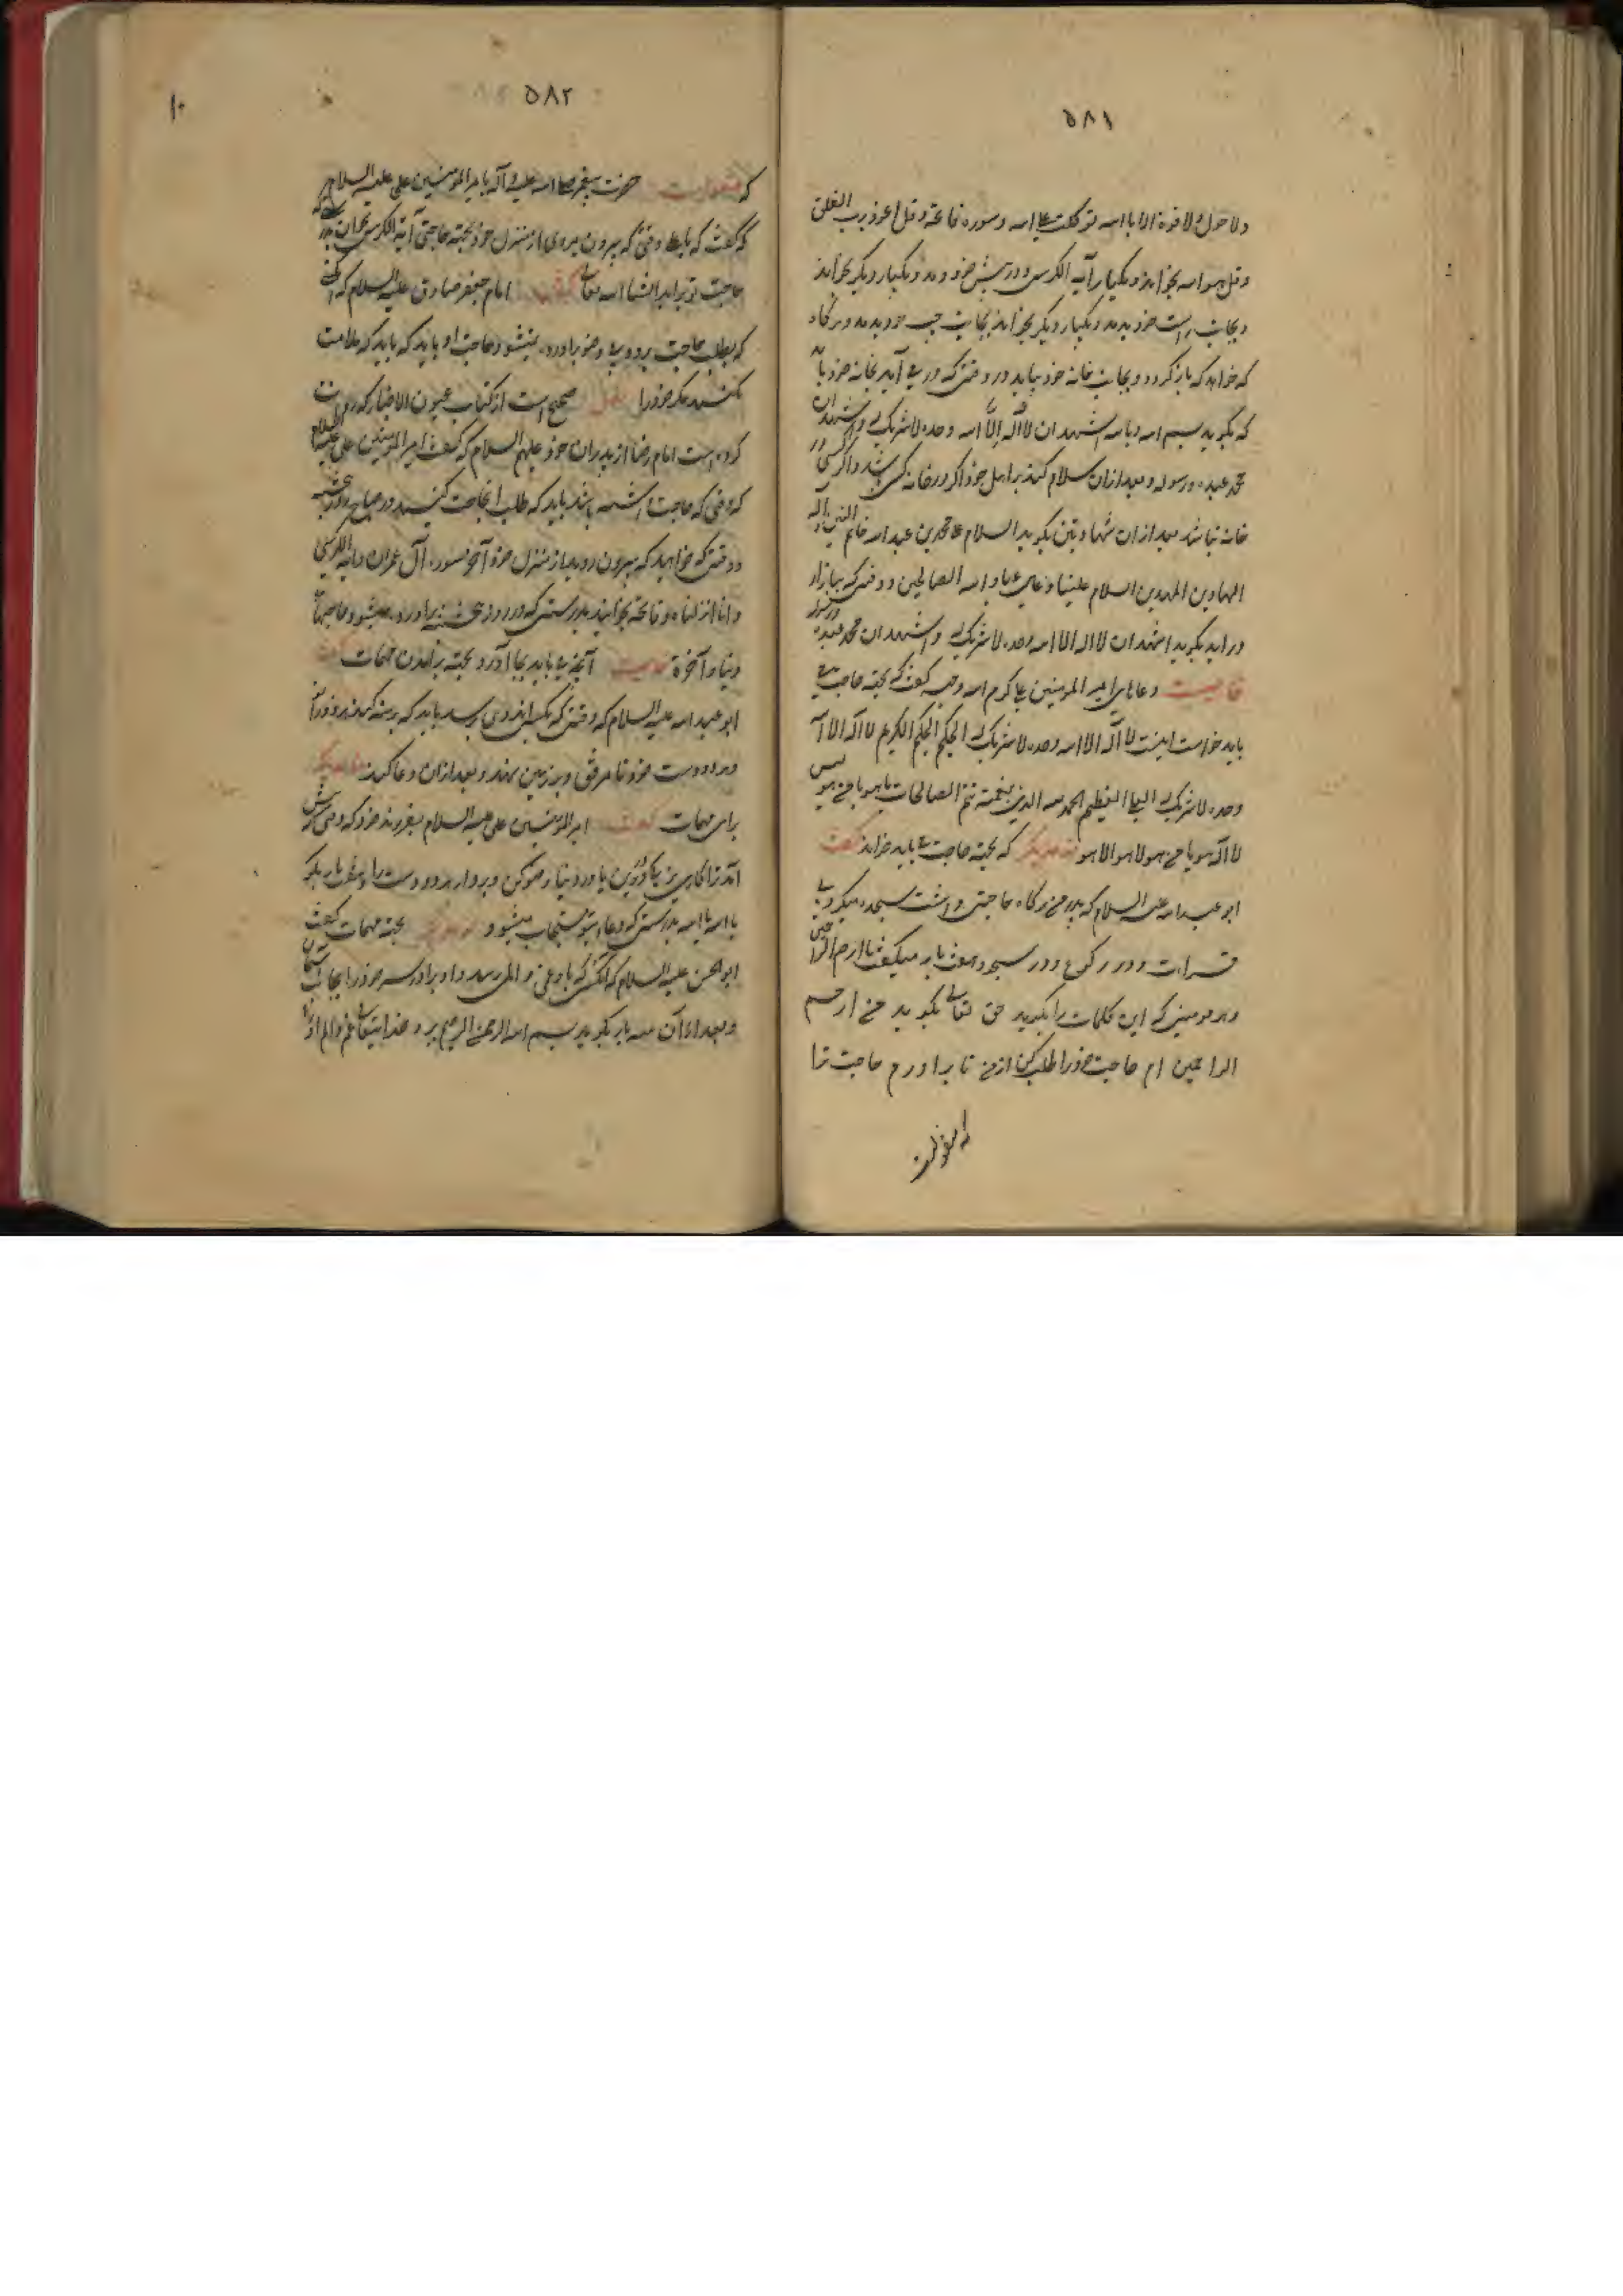 ۵۸۱
ولا حول ولا قوة الا بالله توکلت علی الله و سوره فاتحه و قل اعوذ برب الفلق
و قل هو الله بخواند و یکبار آیه الکرسی و در پیش خود دمد و یکبار دیگر بخواند
و بجانب راست خود بدمد و یکبار دیگر بخواند بجانب چپ خود بدمد و هرگاه
که خواهد که باز گردد و بجانب خانه خود بیاید در وقتی که در می آید بخانه خود باید
که بگوید بسم الله و بالله اشهد ان لا اله الا الله وحده لا شریک له و اشهد ان
محمد عبده و رسوله و بعد ازان سلام کند بر اهل خود اگر در خانه کسی باشد و اگر کسی در
خانه نباشد بعد ازان شهادتین بگوید السلام علی محمد بن عبد الله خاتم النبیین
الهادین المهدیین السلام علینا و علی عباد الله الصالحین و وقتی که ببازار
در اید بگوید اشهد ان لا اله الا الله وحده لا شریک له و اشهد ان محمد عبده و رسوله
خاصیت دعاهای امیر المومنین علی کرم الله وجهه گفت که بجهة حاجت می
باید خواست اینست لا اله الا الله وحده لا شریک له الحکیم الکریم لا اله الا الله
وحده لا شریک له العلی العظیم الحمد لله الذی بنعمته تتم الصالحات یا هو یا من هو
لا اله هو یا من هو لا هو الا هو که بجهة حاجت می باید خواند گفت
ابو عبد الله علیه السلام که پدر من هرگاه حاجتی داشت سجده میکرد بی
قرات و در رکوع و در سجود هفت بار میگفت یا ارحم الراحمین
و هر مومنی که این کلمات را بگوید حق تعالی بگوید منم ارحم
الراحمین ام حاجت خود را طلب کن از من تا براورم حاجت ترا
۱۰
۵۸۲
که منقولست حضرت پیغمبر صلی الله علیه و آله بامیر المومنین علی علیه السلام
که گفت که یا علی وقتی که بیرون میروی از منزل خود بجهة حاجتی آیة الکرسی بخوان بدرستی که
حاجت تو براید انشا الله تعالی امام جعفر صادق علیه السلام که
که بطلب حاجت برود و بی وضو براورده نمیشود حاجت او باید که باید که ملامت
نکند مگر خود را نقل صحیح است از کتاب عیون الاخبار که روایت
کرده است امام رضا از پدران خود علیهم السلام که گفت امیر المومنین علی علیه السلام
که وقتی که حاجت داشته باشد باید که طلب انحاجت کنید در صباح
و وقتی که خواهید که بیرون روید از منزل خود آخر سوره آل عمران و آیة الکرسی
و انا انزلناه و فاتحه بخوانید بدرستی که در روز پنجشنبه براورده میشود حاجتهای
دنیا و آخرة خاصیت آنچه می باید بجا آورد بجهة برآمدن مهمات گفت
ابو عبد الله علیه السلام که وقتی که بکسی اندوهی برسد باید که برهنه کند زانو را
و هر دو دست خود تا مرفق و بر زمین نهد و بعد ازان دعا کند
برای مهمات گفت امیر المومنین علی علیه السلام بفرزند خود که وقتی که پیش
آمد ترا کاری یکار دین یا در دنیا وضو کن و بردار هر دو دست را و هفت بار بگو
یا الله یا الله بدرستی که دعاء تو مستجاب میشود بجهة مهمات گفت
ابو الحسن علیه السلام که آنکسی که باو غمی و المی رسد و او براورد سر خود را بجانب آسمان
و بعد از آن سه بار بگوید بسم الله الرحمن الرحیم ببرد خدایتعالی غم و الم او را